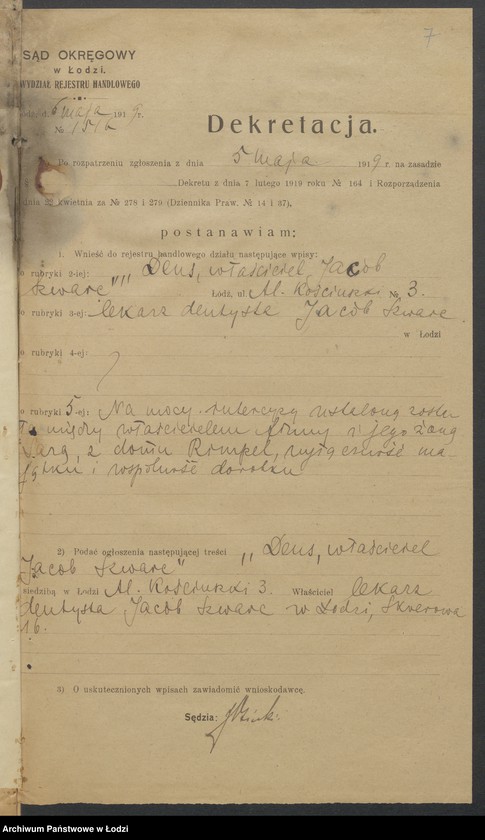 7
SĄD OKRĘGOWY
w Łodzi.
WYDZIAŁ REJESTRU HANDLOWEGO
d. 5 maja 1919 r.
№
Dekretacja.
Po rozpatrzeniu zgłoszenia z dnia 5 maja 1919 r. na zasadzie
Dekretu z dnia 7 lutego 1919 roku № 164 i Rozporządzenia
dnia 22 kwietnia za № 278 i 279 (Dziennika Praw. № 14 i 37),
postanawiam:
1. Wnieść do rejestru handlowego działu następujące wpisy:
o rubryki 2-iej: „Dens, właściciel Jacób
Szwarc" Łódź, ul Al. Kościuszki № 3.
o rubryki 3-ej: lekarz dentysta Jacób Szwarc
w Łodzi
o rubryki 4-ej:
o rubryki 5-ej: Na mocy intercyzy ustaloną zosta
ła między właścicielem firmy i jego żoną
z domu wyłączność ma-
jątku i wspólność dorobku
2) Podać ogłoszenia następującej treści „Dens, właściciel
Jacob Szwarc"
siedzibą w Łodzi Al. Kościuszki 3. Właściciel lekarz
dentysta Jacób Szwarc w Łodzi, Skwerowa
16.
3) O uskutecznionych wpisach zawiadomić wnioskodawcę.
Sędzia:
Archiwum Państwowe w Łodzi